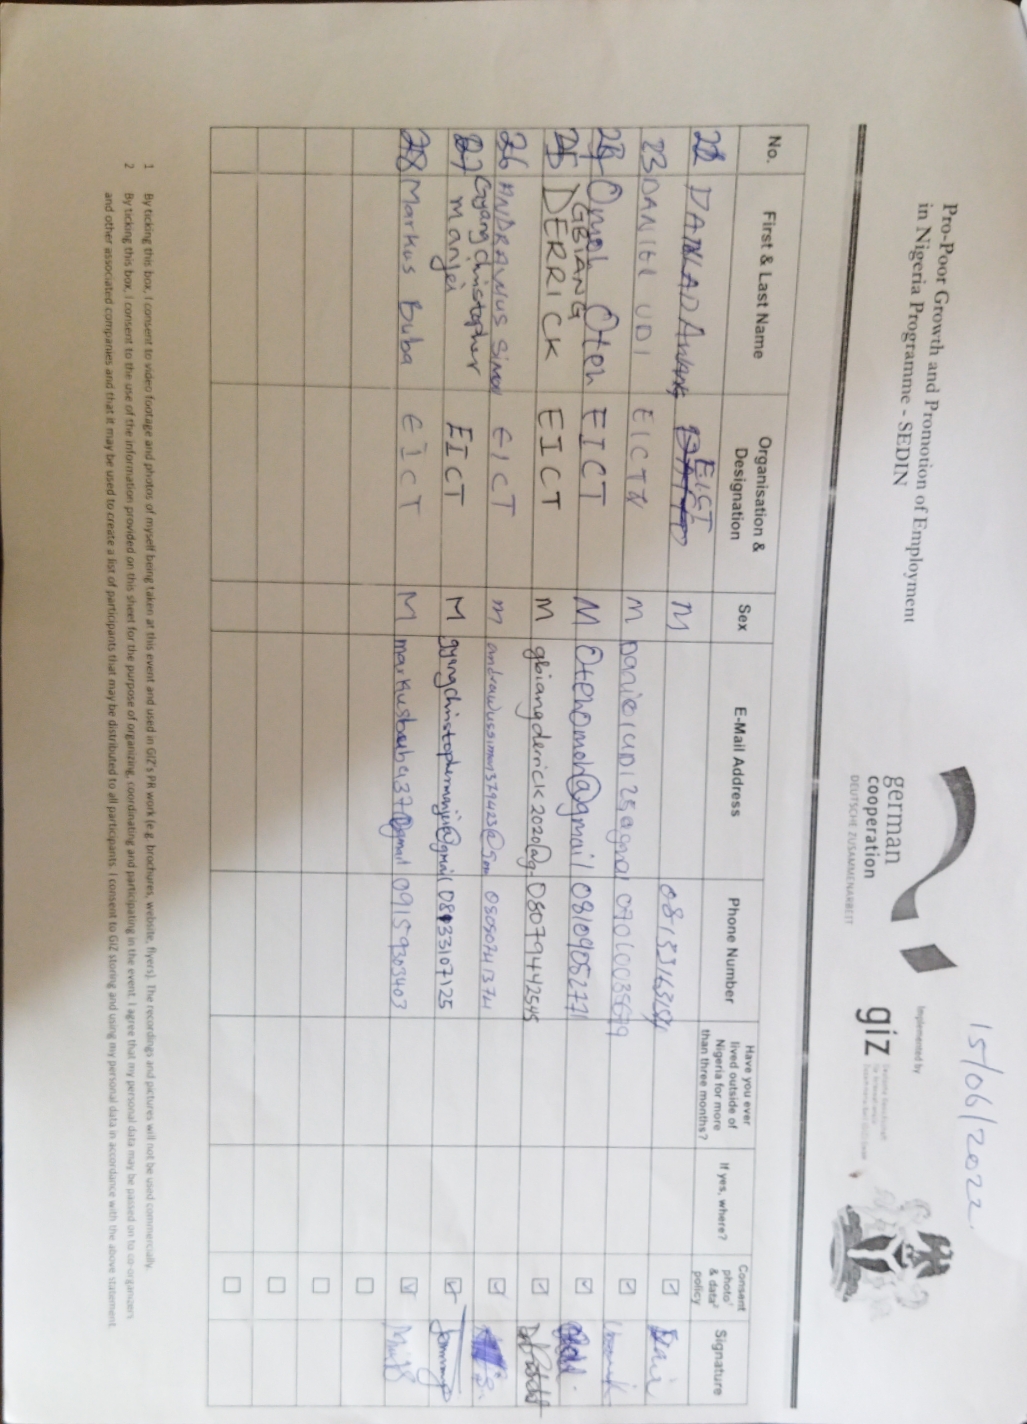 15/06/2022.
Pro-Poor Growth and Promotion of Employment
in Nigeria Programme - SEDIN
german
cooperation
DEUTSCHE ZUSAMMENARBEIT
Implemented by
giz
No. First & Last Name Organisation & Designation Sex E-Mail Address Phone Number Have you ever lived outside of Nigeria for more than three months? If yes, where? Consent photo¹ & data² policy Signature
22 EICT M 08133163154
23 DANIEL UDI EICT M 07060035679
24 Omoh Oteh EICT M Otehomoh@gmail 08109052771
25 GBIANG DERRICK EICT M gbiangderrick2020@g 08079442545
26 ANDRAWUS Simon EICT M andrawussimon379423@gm 08050741374
27 Gyang Christopher Manjei EICT M gyangchristophermanjei@gmail 08133107125
28 Markus Buba EICT M markusbuba37@gmail 09159303403
1 By ticking this box, I consent to video footage and photos of myself being taken at this event and used in GIZ's PR work (e.g. brochures, website, flyers). The recordings and pictures will not be used commercially.
2 By ticking this box, I consent to the use of the information provided on this sheet for the purpose of organizing, coordinating and participating in the event. I agree that my personal data may be passed on to co-organizers
and other associated companies and that it may be used to create a list of participants that may be distributed to all participants. I consent to GIZ storing and using my personal data in accordance with the above statement.